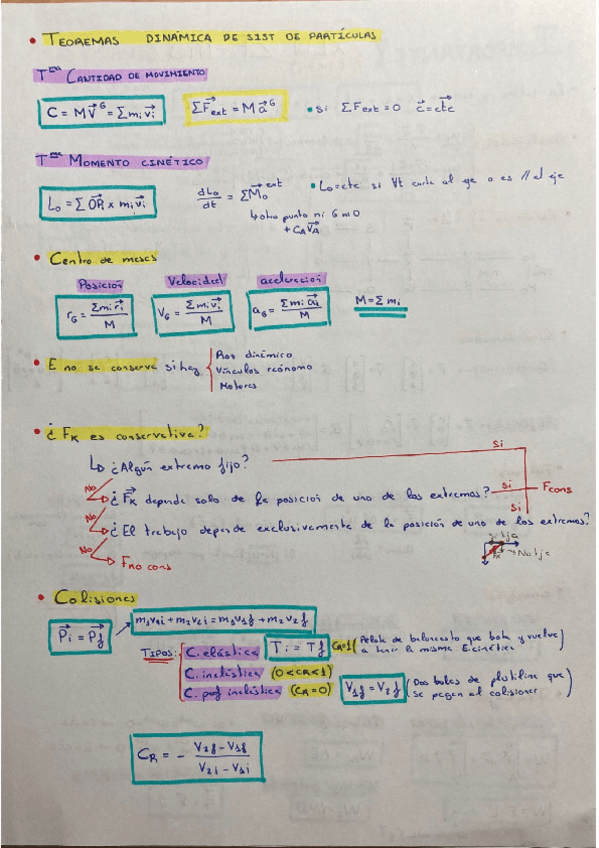 • TEOREMAS DINÁMICA DE SIST DE PARTÍCULAS
Tᵐᵃ CANTIDAD DE MOVIMIENTO
C = M V⃗ᴳ = Σmᵢv⃗ᵢ ΣF⃗ₑₓₜ = M a⃗ᴳ • si ΣFext = 0 c⃗ = cte
Tᵐᵃ MOMENTO CINÉTICO
L₀ = Σ OP⃗ᵢ x mᵢv⃗ᵢ dL₀/dt = ΣM⃗₀ᵉˣᵗ • L₀ = cte si ∀t corta al eje o es // al eje
↳ otro punto ni G ni O
+ C_A V⃗_A
• Centro de masas
Posición Velocidad aceleracion
r_G = Σmᵢr⃗ᵢ / M V_G = Σmᵢv⃗ᵢ / M a_G = Σmᵢa⃗ᵢ / M M = Σmᵢ
• E no se conserva si hay
Roz dinámico
Vínculos reónomo
Motores
• ¿Fₖ es conservativa?
↳ ¿Algún extremo fijo? Si
No ¿F⃗ₖ depende solo de la posición de uno de los extremos? Si Fcons
No ¿El trabajo depende exclusivamente de la posición de uno de los extremos? Si
No Fno cons
Fₖ No tja
• Colisiones
P⃗i = P⃗f m₁v₁i + m₂v₂i = m₁v₁f + m₂v₂f
TIPOS: C. elástica Ti = Tf CR=1 (Pelota de baloncesto que bota y vuelve a tener la misma E.cinética)
C. inelástica (0<CR<1)
C. perf inelástica (CR=0) V₁f = V₂f (Dos bolas de plastilina que se pegan al colisionar)
C_R = - (V₂f - V₁f) / (V₂i - V₁i)